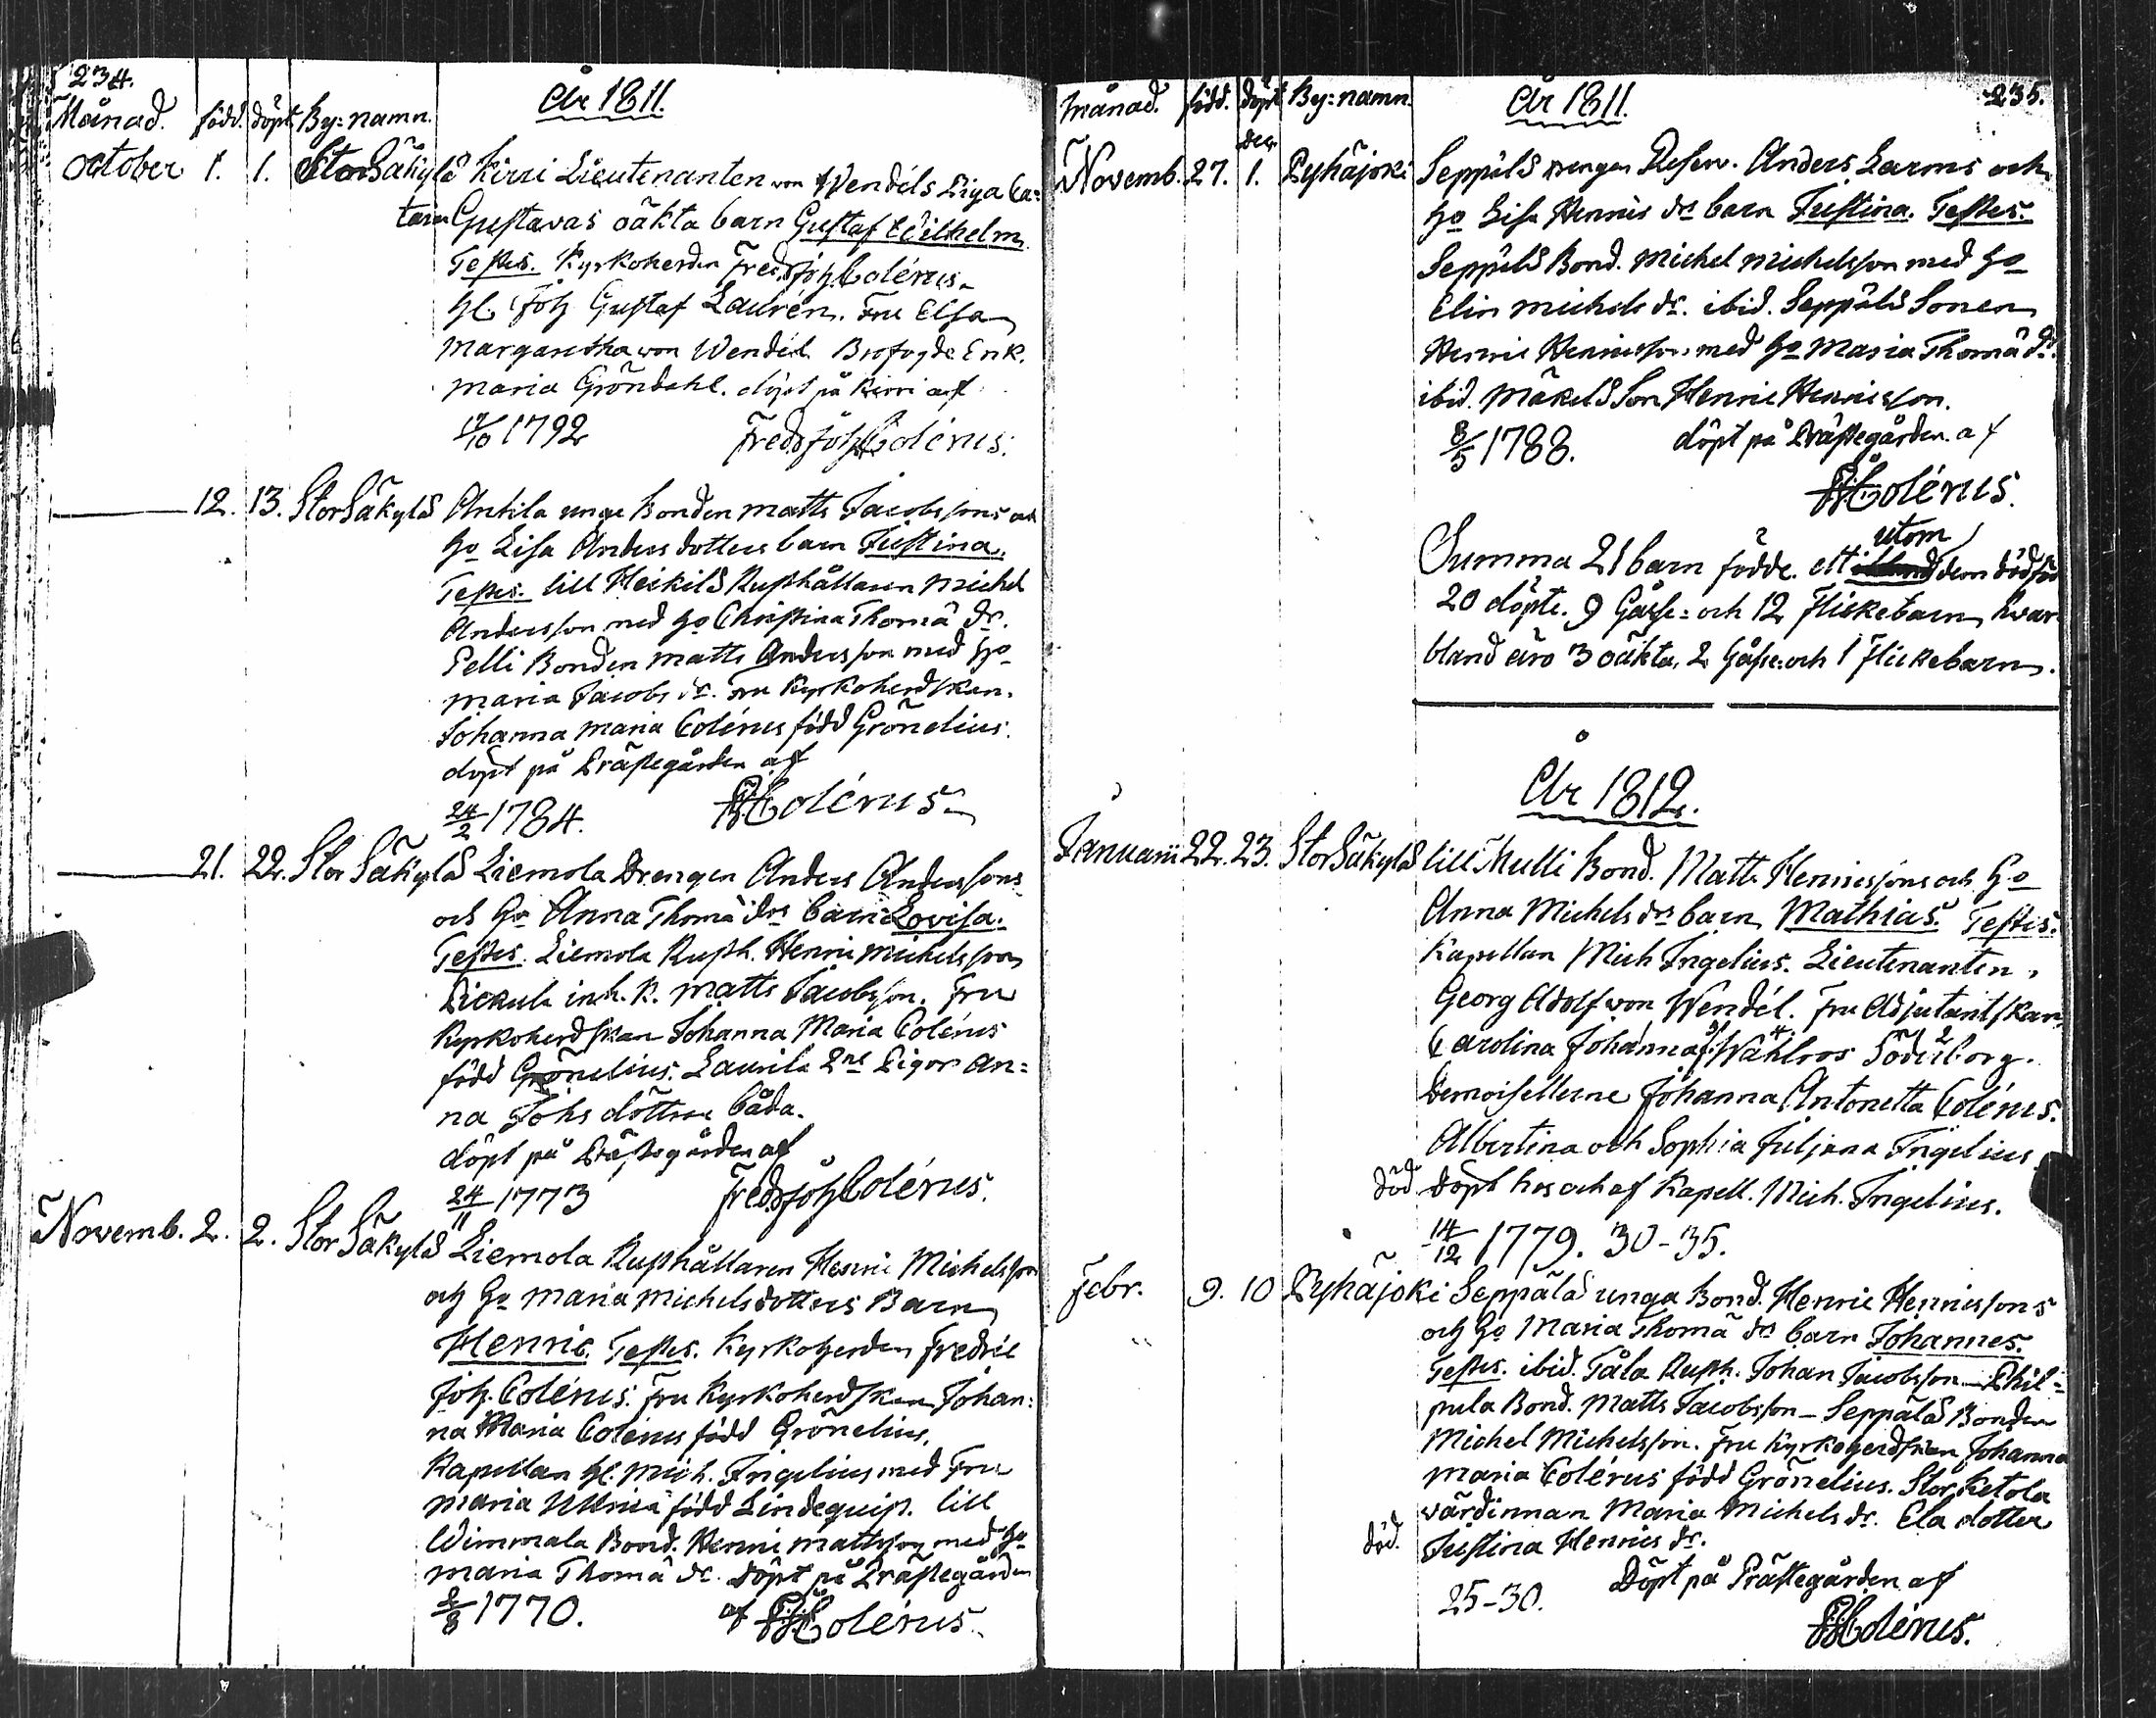 234.
Månad. född. döpt. By=namn. År 1811.
October 1. 1. StorSäkylä Kirri Lieutenanten von Wendéls Piga Ca=
tarin Gustavas oäkta barn Gustaf Wilhelm
Testes. Kyrkoherden Fredr Joh Colérus.
H. Joh Gustaf Laurén. Fru Elsa
Margaretha von Wendél Brofogde Enk.
Maria Gröndahl. döpt på Kirri af
17/10 1792 Fredr Joh Colérus.
12. 13. StorSäkylä Anttila unge Bonden Matts Jacobssons och
Ho Lisa Anders dotters barn Justina.
Testes. lill Heikilä Rusthållaren Michel
Andersson med Ho Christina Thomä dr.
Pelli Bonden Matts Andersson med Ho
Maria Jacobs dr. Fru Kyrkoherdskan
Johanna Maria Colérus född Grönelius.
döpt på Prästegården af
24/2 1784. FJColérus
21. 22. Stor Säkylä Liemola Drengen Anders Anderssons
och Ho Anna Thomä drs barn Lovisa.
Testes. Liemola Rusth. Henric Michelsson
inh. K. Matts Jacobsson. Fru
Kyrkoherdskan Johanna Maria Colérus
född Grönelius. Laurila 2ne Pigor An=
na Johs döttrar båda.
döpt på Prästegården af
24/11 1773 Fredr Joh Colérus.
Novemb. 2. 2. Stor Säkylä Liemola Rusthållaren Henric Michelssons
och Ho Maria Michelsdotters Barn
Henric. Testes. Kyrkoherden Fredric
Joh. Colérus. Fru Kyrkoherdskan Johan=
na Maria Colérus född Grönelius.
Kapellan H. Mich. Ingelius med Fru
Maria Ulrica född Lindequist. lill
Wimmala Bond. Henric Mattsson med Ho
Maria Thomä dr. Döpt på Prästegården
2/8 1770. af FJColérus.
235.
Månad. född. döpt By=namn. År 1811.
Dec.
Novemb. 27. 1. Pyhäjoki Seppälä Drengen Reserv. Anders Larms och
Ho Lisa Henrics drs barn Justina. Testes.
Seppälä Bond. Michel Michelsson med Ho
Elin Michels dr. ibid. Seppälä Sonen
Henric Henricsson med Ho Maria Thomä dr.
ibid. Mäkelä Son Henric Henricsson.
8/5 1788. döpt på Prästegården af
FJColérus.
utom
Summa 21 barn födde. ett dem dödföd
20 döpte. 9 Gåsse= och 12 Flickebarn, hvar
bland äro 3 oäkta, 2 Gåsse= och 1 Flickebarn.
År 1812.
Januarii 22. 23. StorSäkylä lill Mulli Bond. Matts Henricssons och Ho
Anna Michels drs barn Mathias. Testes.
Kapellan Mich Ingelius. Lieutenanten
Georg Adolf von Wendél. Fru Adjutantskan
Carolina Johanna f. Wahlroos Söderborg.
Demoisellerne Johanna Antonetta Colérus.
Albertina och Sophia Juljana Ingelius
död Döpt hos och af Kapell. Mich. Ingelius.
14/12 1779. 30-35.
Febr. 9. 10 Pyhäjoki Seppälä unga Bond. Henric Henricssons
och Ho Maria Thomä drs barn Johannes.
Testes. ibid. Tåla Rusth. Johan Jacobsson - Phil=
pula Bond. Matts Jacobsson - Seppälä Bonden
Michel Michelsson. Fru Kyrkoherdskan Johanna
Maria Colérus född Grönelius. Stor Ketola
värdinnan Maria Michels dr. Ela dotter
död. Justina Henrics dr.
Döpt på Prästegården af
25-30.
FJColérus.